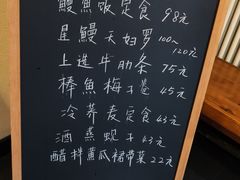 鰻魚饭定食 98元
星鰻天妇罗 100元
120元
上选牛肋条 75元
棒魚梅子卷 45元
冷荞麦定食 43元
酒蒸蚬子 43元
醋拌黄瓜裙带菜 22元